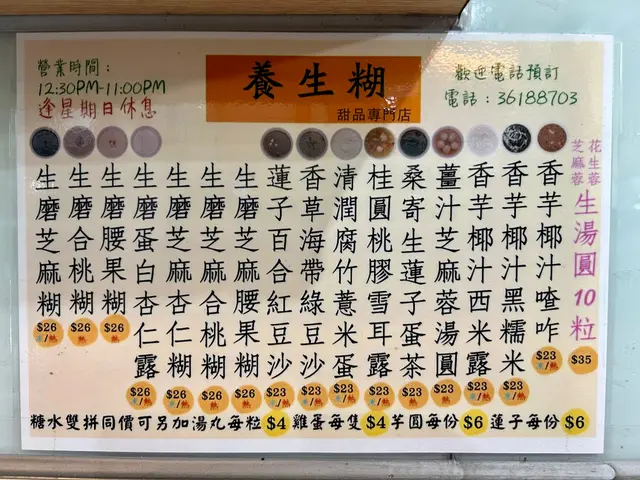 營業時間：
12:30PM-11:00PM
逢星期日休息
養生糊
甜品專門店
歡迎電話預訂
電話：36188703
生磨芝麻糊
$26
凍/熱
生磨合桃糊
$26
生磨腰果糊
$26
凍/熱
生磨蛋白杏仁露
$26
凍/熱
生磨芝麻杏仁糊
$26
凍/熱
生磨芝麻合桃糊
$26
凍/熱
生磨芝麻腰果糊
$26
凍/熱
蓮子百合紅豆沙
$23
凍/熱
香草海帶綠豆沙
$23
凍/熱
清潤腐竹薏米蛋
$23
凍/熱
桂圓桃膠雪耳露
$23
凍/熱
桑寄生蓮子蛋茶
$23
凍/熱
薑汁芝麻蓉湯圓
$23
熱
香芋椰汁西米露
$23
凍/熱
香芋椰汁黑糯米
$23
凍/熱
香芋椰汁喳咋
$23
凍/熱
花生蓉
芝麻蓉
生湯圓10粒
$35
糖水雙拼同價可另加湯丸每粒$4 雞蛋每隻$4 芋圓每份$6 蓮子每份$6